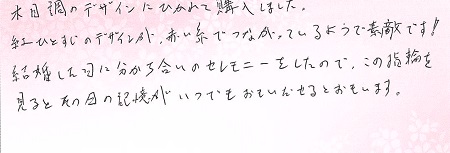 木目調のデザインにひかれて購入しました。
紅ひとすじのデザインが、赤い糸でつながっているようで素敵です!
結婚した日に分かち合いのセレモニーをしたので、この指輪を
見るとあの日の記憶がいつでもおもいだせるとおもいます。